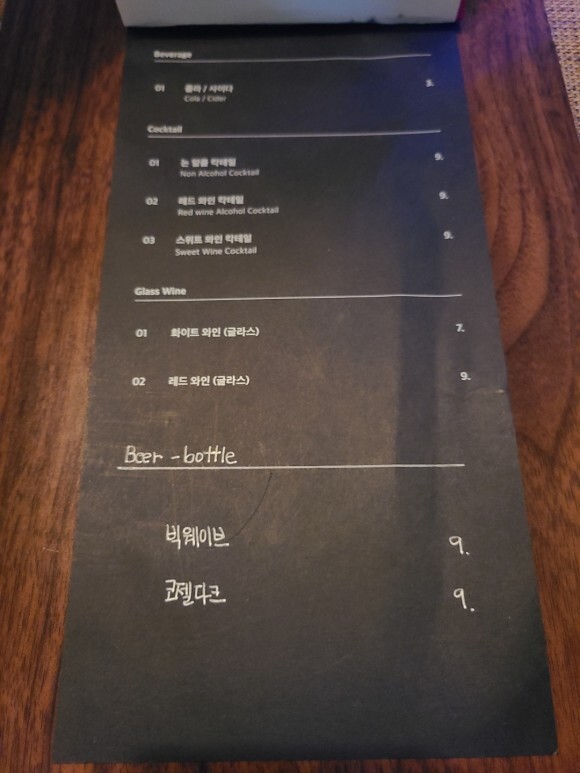 Beverage
01 콜라 / 사이다 3.
Cola / Cider
Cocktail
01 논 알콜 칵테일 9.
Non Alcohol Cocktail
02 레드 와인 칵테일 9.
Red wine Alcohol Cocktail
03 스위트 와인 칵테일 9.
Sweet Wine Cocktail
Glass Wine
01 화이트 와인 (글라스) 7.
02 레드 와인 (글라스) 9.
Beer - bottle
빅웨이브 9.
코젤다크 9.